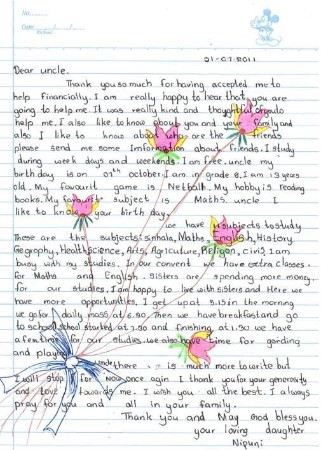 No:
Date:
21-07-2011
Dear uncle.
Thank you so much for having accepted me to
help financially. I am really happy to hear that you are
going to help me. It was really kind and thoughtful of you to
help me. I also like to know about you and your family and
also I like to know about who are the friends
please send me some Information about friends. I study
during week days and weekends I am free. uncle my
birth day is on 07th october. I am in grade 8. I am 13 years
old. My favourit game is Netball. My hobby is reading
books. My favourit subject is Maths. uncle I
like to know your birth day.
we have 11 subjects to study
These are the subjects: sinhala, Maths, English, History
Geography, Health science, Arts, Agriculture, Religon, civic, I am
busy with my studies. In our convent we have extra classes.
for Maths and English. Sisters are spending more money
for our studies, I am happy to live with sisters and Here we
have more opportunities. I get up at 5.15 in the morning
we go for daily mass, at 6.30 Then we have breakfast and go
to school, school started at 7.30 and finishing at 1.30 we have
a few time for our studies. we also have time for gording
and playing.
uncle there is much more to write but
I will stop for Now once again I thank you for your generosity
and Love towards me. I wish you all the best. I always
pray for you and all in your family.
Thank you and May God bless you.
your loving daughter
Nipuni